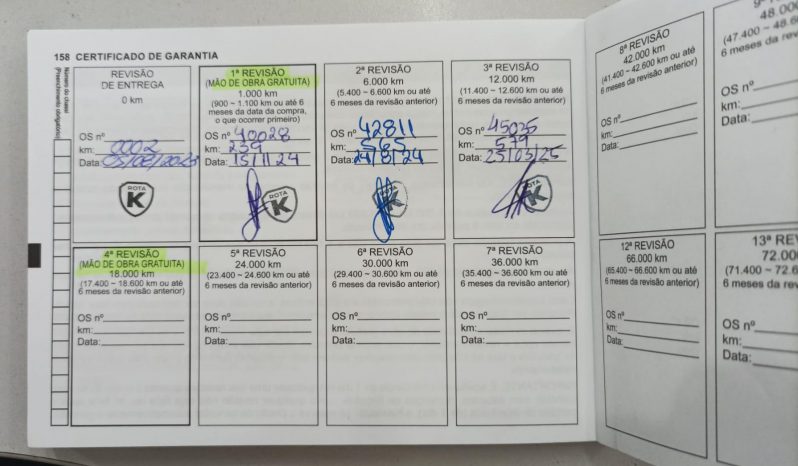 158 CERTIFICADO DE GARANTIA
Número do chassi
(Preenchimento obrigatório)
REVISÃO
DE ENTREGA
0 km
OS nº
km: 0002
Data:
ROTA
K
1ª REVISÃO
(MÃO DE OBRA GRATUITA)
1.000 km
(900 ~ 1.100 km ou até 6
meses da data da compra,
o que ocorrer primeiro)
OS nº 40028
km: 239
Data: 15/11/24
ROTA
K
2ª REVISÃO
6.000 km
(5.400 ~ 6.600 km ou até
6 meses da revisão anterior)
OS nº 42811
km: 565
Data: 24/8/24
ROTA
K
3ª REVISÃO
12.000 km
(11.400 ~ 12.600 km ou até
6 meses da revisão anterior)
OS nº 45035
km: 579
Data: 25/03/25
ROTA
K
4ª REVISÃO
(MÃO DE OBRA GRATUITA)
18.000 km
(17.400 ~ 18.600 km ou até
6 meses da revisão anterior)
OS nº
km:
Data:
5ª REVISÃO
24.000 km
(23.400 ~ 24.600 km ou até
6 meses da revisão anterior)
OS nº
km:
Data:
6ª REVISÃO
30.000 km
(29.400 ~ 30.600 km ou até
6 meses da revisão anterior)
OS nº
km:
Data:
7ª REVISÃO
36.000 km
(35.400 ~ 36.600 km ou até
6 meses da revisão anterior)
OS nº
km:
Data:
8ª REVISÃO
42.000 km
(41.400 ~ 42.600 km ou até
6 meses da revisão anterior)
OS nº
km:
Data:
48.00
(47.400 ~ 48.
6 meses da rev
OS nº
km:
Data:
12ª REVISÃO
66.000 km
(65.400 ~ 66.600 km ou até
6 meses da revisão anterior)
OS nº
km:
Data:
13ª RE
72.00
(71.400 ~ 72.6
6 meses da rev
OS nº
km:
Data: